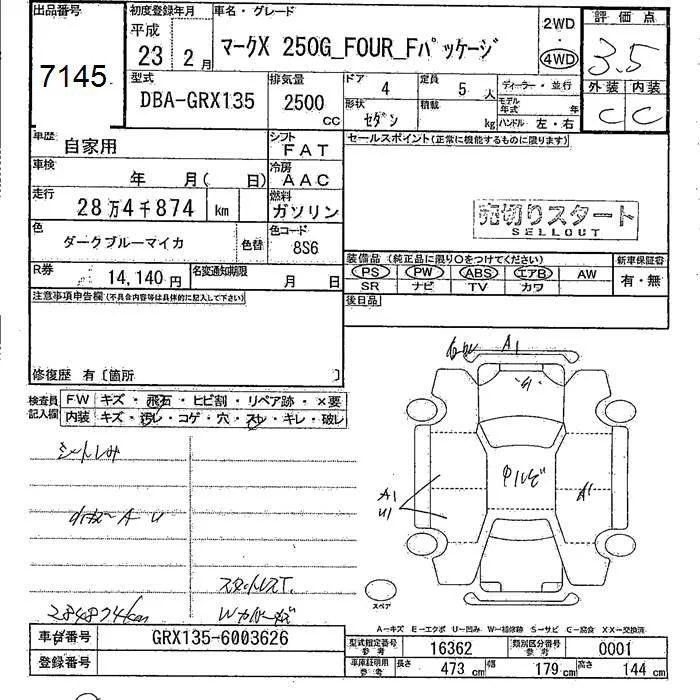 出品番号
7145
初度登録年月
平成
23 2月
車名・グレード
マークX 250G_FOUR_Fパッケージ
2WD
・
4WD
評価点
3.5
外装 内装
C C
型式
DBA-GRX135
排気量
2500
CC
ドア 4
定員 5 人
形状 セダン
積載 kg
ディーラー・並行
モデル年式 年
ハンドル 左・右
車歴
自家用
シフト
FAT
車検
年 月( 日)
冷房
AAC
走行
28万4千874 km
燃料
ガソリン
色
ダークブルーマイカ
色替
色コード
8S6
R券
14,140円
名変通知期限
月 日
セールスポイント(正常に機能するものに限ります)
売切りスタート
SELLOUT
装備品(純正品に限り○をつけてください)
新車保証書
PS PW ABS エアB AW
有・無
SR ナビ TV カワ
後日品
注意事項申告欄(不具合内容等は具体的に記入して下さい)
修復歴 有〔箇所 〕
検査員
記入欄
FW キズ・飛石・ヒビ割・リペア跡・×要
内装 キズ・汚レ・コゲ・穴・スレ・キレ・破レ
シートしみ
284874km
A1
A1
U1
A1
スペア
A−キズ E−エクボ U−凹み W−補修跡 S−サビ C−腐食 XX−交換済
車台番号
GRX135-6003626
登録番号
型式指定番号
参考
16362
類別区分番号
参考
0001
車庫証明用
参考
長さ 473 cm 幅 179 cm 高さ 144 cm